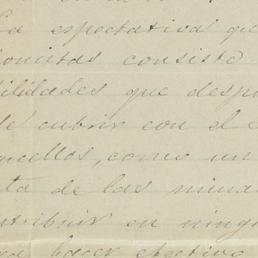 la espectativa que
consiste
que desp
de cubrir con el
quellos, como un
ta de las mina
tribuir en ningu
hacer efectivo